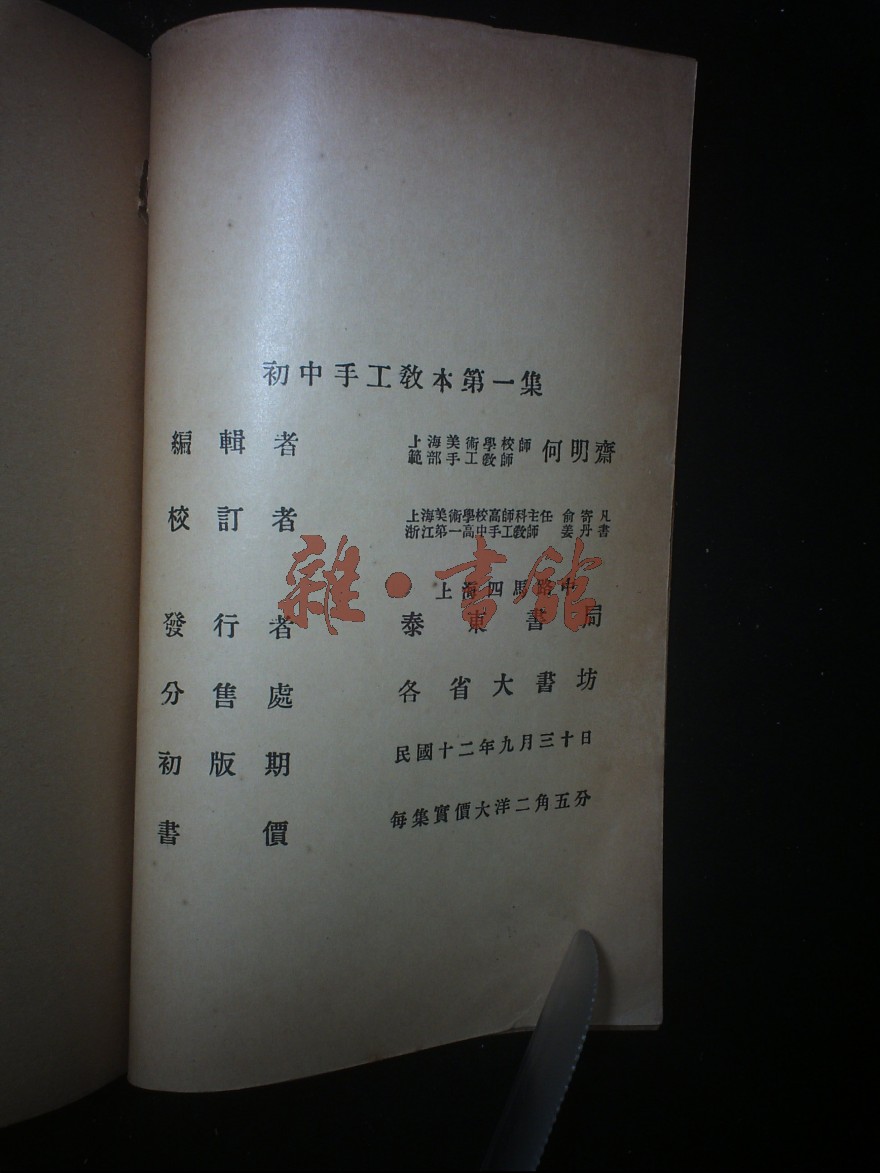 初中手工敎本第一集
編輯者 上海美術學校師範部手工敎師 何明齋
校訂者 上海美術學校高師科主任 俞寄凡
浙江第一高中手工敎師 姜丹書
上海四馬路中
發行者 泰東書局
分售處 各省大書坊
初版期 民國十二年九月三十日
書價 每集實價大洋二角五分
雜·書館